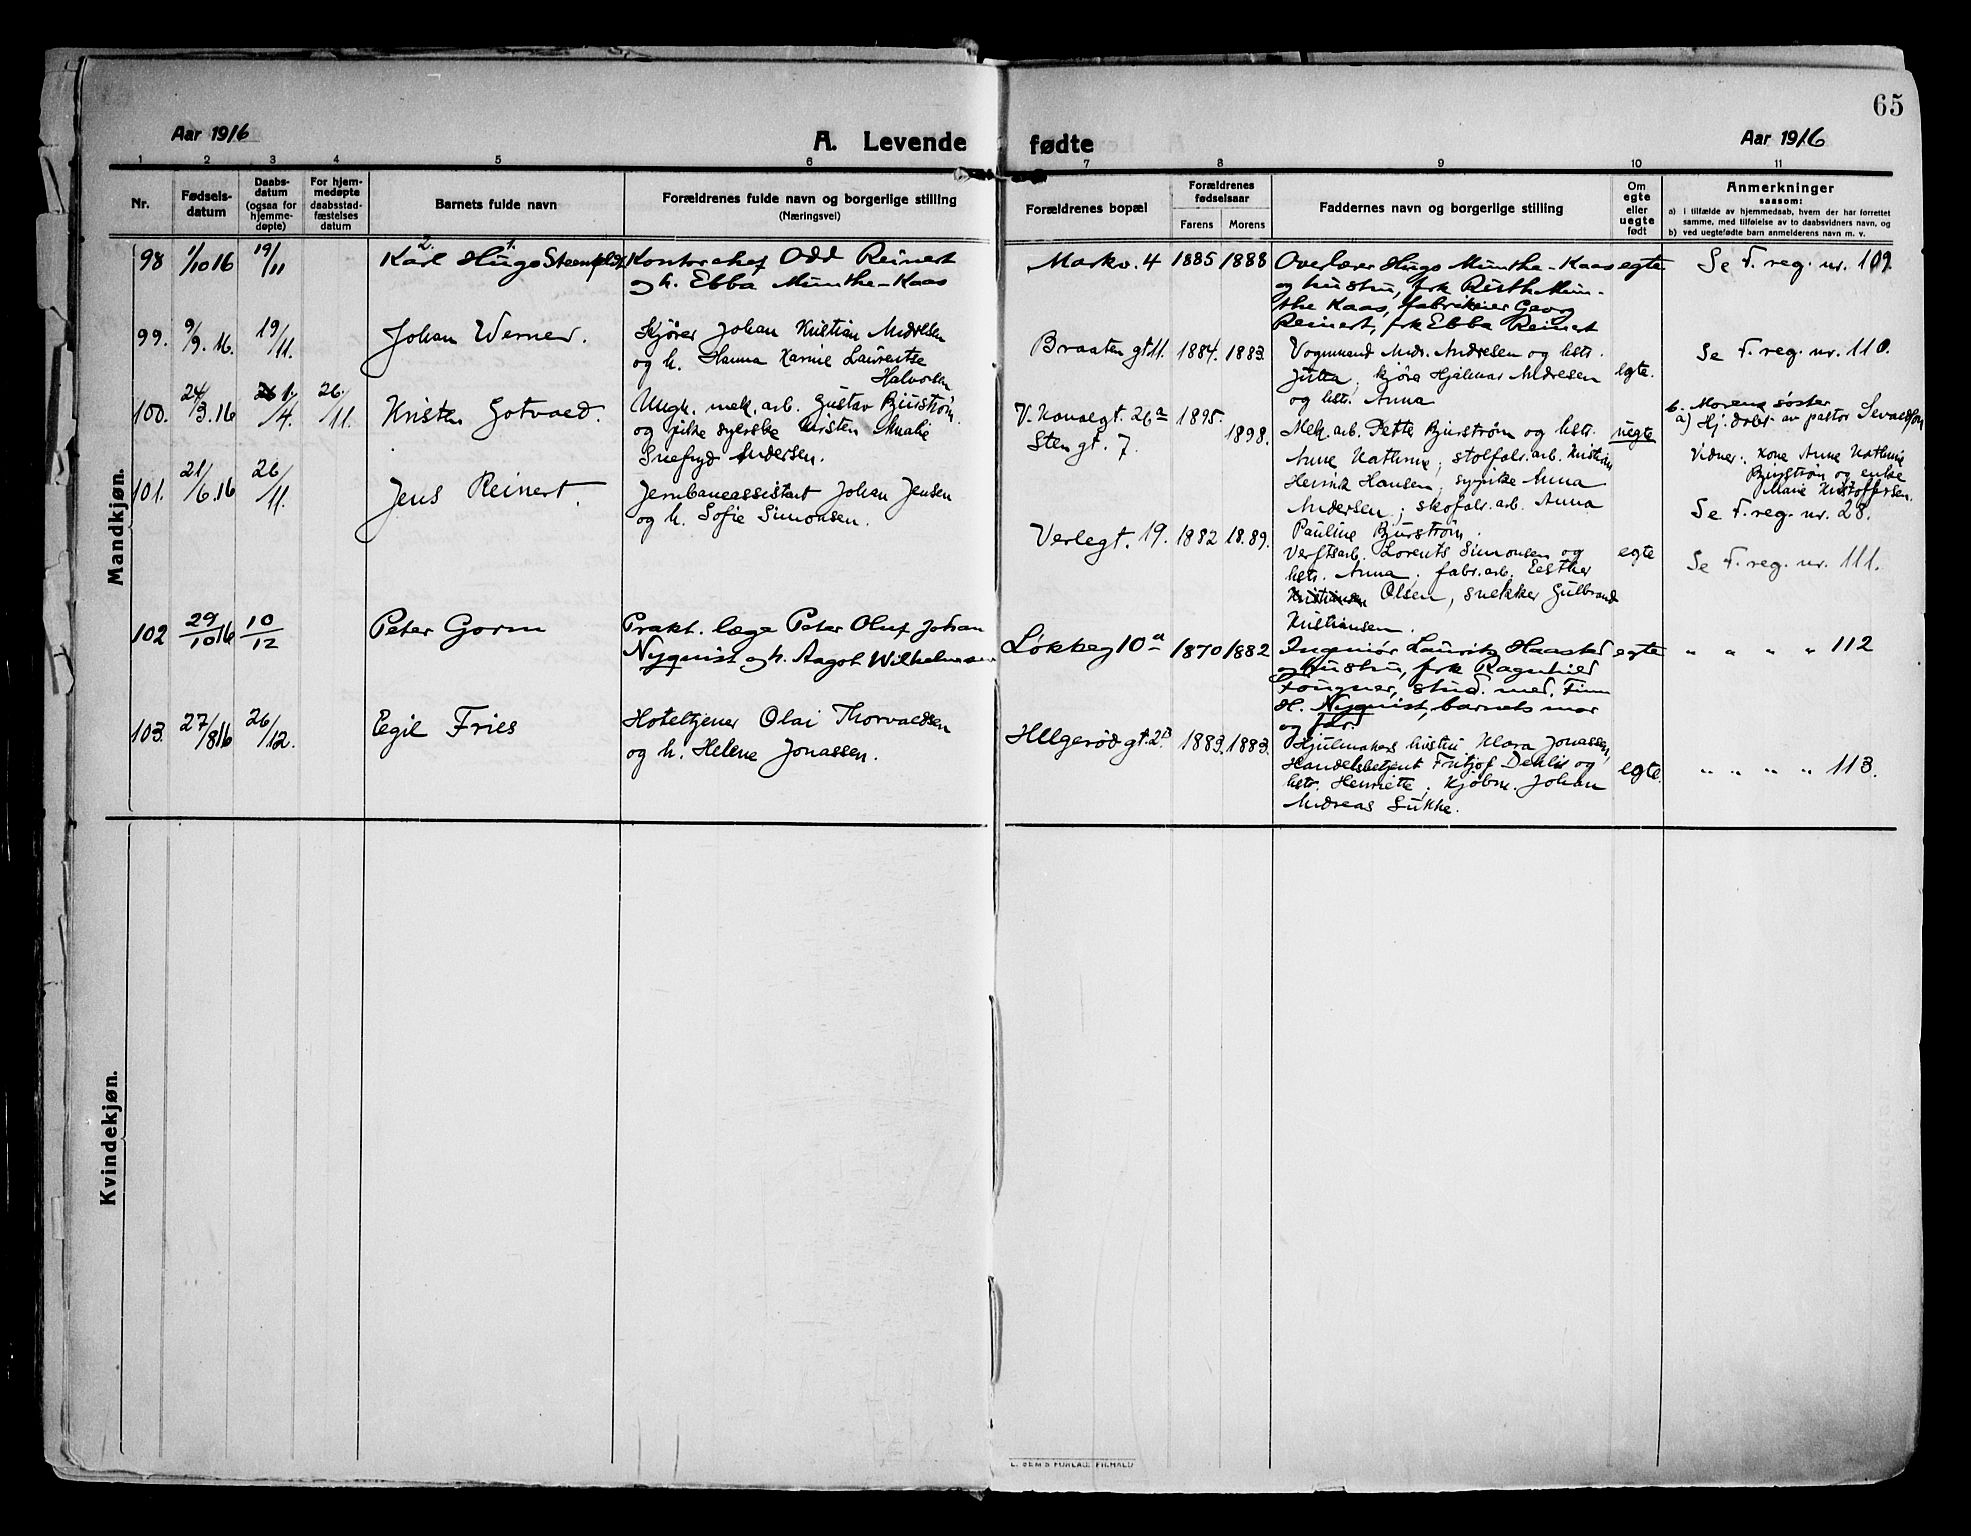 65
Aar 1916
A. Levende
fødte
Aar 1916
1 2 3 4 5 6 7 8 9 10 11
Nr.
Fødsels-
datum
Daabs-
datum
(ogsaa for
hjemme-
døpte)
For hjem-
medøpte
daabsstad-
fæstelses
datum
Barnets fulde navn
Forældrenes fulde navn og borgerlige stilling
(Næringsvei)
Forældrenes bopæl
Forældrenes
fødselsaar
Farens Morens
Faddernes navn og borgerlige stilling
Om
egte
eller
uegte
født
Anmerkninger
saasom:
a) i tilfælde av hjemmedaab, hvem der har forrettet
samme, med tilføielse av to daabsvidners navn, og
b) ved uegtefødte barn anmelderens navn m. v.
Mandkjøn.
98 1/10 16 19/11
2. 1.
Karl Hugo
Kontorchef Odd Reinert
og h. Ebba Munthe-Kaas
Markv. 4 1885 1888
Overlærer Hugo Munthe-Kaas
og hustru, frk Ruth Mun-
the Kaas, fabrikeier Georg
Reinert, frk Ebba Reinert
egte
Se F. reg. nr. 109.
99. 9/9. 16. 19/11.
Johan Werner.
Kjører Johan Kristian Andresen
og h. Hanna Karine Laurentse
Halvorsen
Braaten gt. 11. 1884. 1883.
Vognmand Andr. Andresen og hstr.
Jutta, kjøre Hjalmar Andresen
og hstr. Anna
egte.
Se F. reg. nr. 110.
100. 24/3. 16 1./4. 26./11.
Kristen Gotvald.
Ungk. mek. arb. Gustav Bjurstrøm
og pike syerske Kirsten Amalie
Snefryd Andersen.
V. Kanalgt. 26a 1895.
Sten gt. 7. 1898.
Mek. arb. Pette Bjurstrøm og hstr.
Anne Kathrine; stolfabr. arb. Kristian
Henrik Hansen, sypike Anna
Andersen; skofabr. arb. Anna
Pauline Bjurstrøm.
uegte
b. Morens søster
a) Hj. døbt av pastor Sevaldson
Vidner: Kone Anne Kathrine
Bjurstrøm og enke
Marie Kristoffersen.
Se F. reg. nr. 28.
101. 21/6. 16 26/11.
Jens Reinert.
Jernbaneassistent Johan Jensen
og h. Sofie Simonsen.
Verlegt. 19. 1882 1889.
Verftsarb. Lorents Simonsen og
hstr. Anna, fabr. arb. Eesther
Kristiansen Olsen, snekker Gulbrand
Kristiansen.
egte
Se F. reg. nr. 111.
102 29/10 16 10/12
Peter Gorm
Prakt. læge Peter Oluf Johan
Nyquist og h. Aagot Wilhelmsen
Løkkeg 10a 1870 1882
Ingeniør Lauritz Haasted
og hustru, frk Ragnhild
Fougner, stud. med. Finn
H. Nyquist, barnets mor
og far
egte
" " " " 112
103. 27/8 16 26/12.
Egil Fries
Hoteltjener Olai Thorvaldsen
og h. Helene Jonassen.
Helgerød gt. 2b 1883. 1883.
Hjulmakers hustru Klara Jonassen,
Handelsbetjent Fritjof Dehlie og
hstr. Henriette, Kjøbm. Johan
Andreas Lükke.
egte.
" " " " 113.
Kvindekjøn.
E. SEM'S FORLAG, FR.HALD